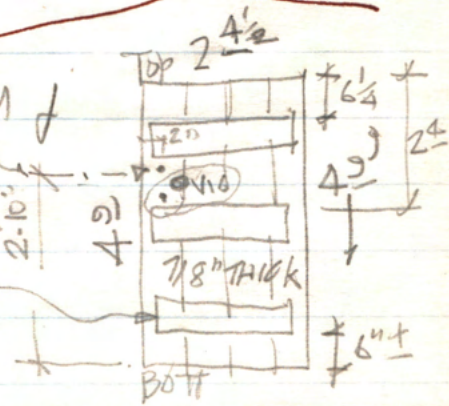 Top 2 4½
6¼
2"
2 4
VIO
4 9
4 9
2'-10"
7/8" THICK
6" ±
BOTT